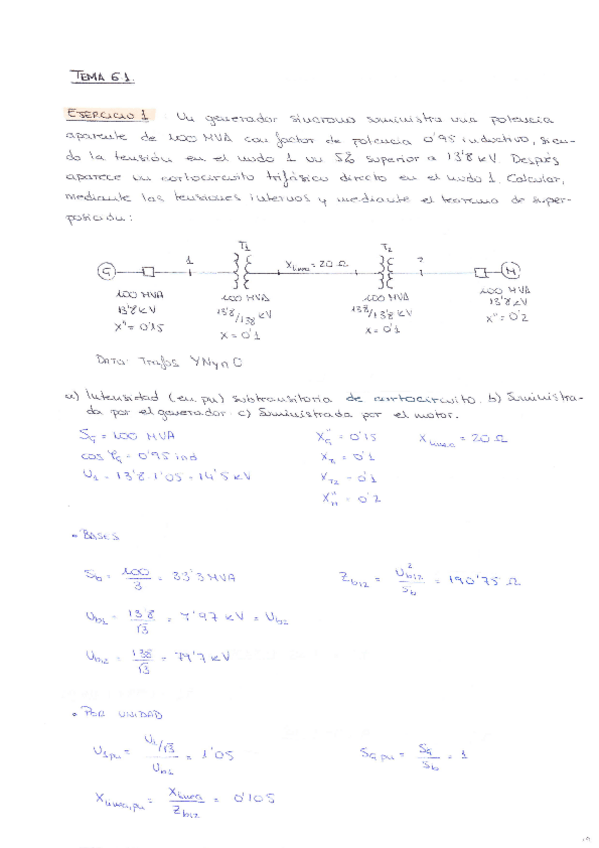 TEMA 6.1.
EJERCICIO 1 : Un generador síncrono suministra una potencia
aparente de 100 MVA con factor de potencia 0'95 inductivo, sien-
do la tensión en el nudo 1 un 5% superior a 13'8 kV. Después
aparece un cortocircuito trifásico directo en el nudo 1. Calcular,
mediante las tensiones internas y mediante el teorema de super-
posición:
T1 T2
G 1 Xlinea = 20 Ω 2 M
100 MVA 100 MVA 100 MVA 100 MVA
13'8 kV 13'8/138 kV 138/13'8 kV 13'8 kV
X" = 0'15 X = 0'1 X = 0'1 X" = 0'2
DATO: Trafos YNyn0
a) Intensidad (en pu) subtransitoria de cortocircuito. b) Suministra-
da por el generador. c) Suministrada por el motor.
SG = 100 MVA XG" = 0'15 Xlinea = 20 Ω
cos φG = 0'95 ind XT1 = 0'1
U1 = 13'8 · 1'05 = 14'5 kV XT2 = 0'1
XM" = 0'2
• BASES
Sb = 100/3 = 33'3 MVA Zb12 = Ub12²/Sb = 190'75 Ω
Ub1 = 13'8/√3 = 7'97 kV = Ub2
Ub12 = 138/√3 = 79'7 kV
• POR UNIDAD
U1pu = (U1/√3)/Ub1 = 1'05 SG pu = SG/Sb = 1
Xlinea,pu = Xlinea/Zb12 = 0'105